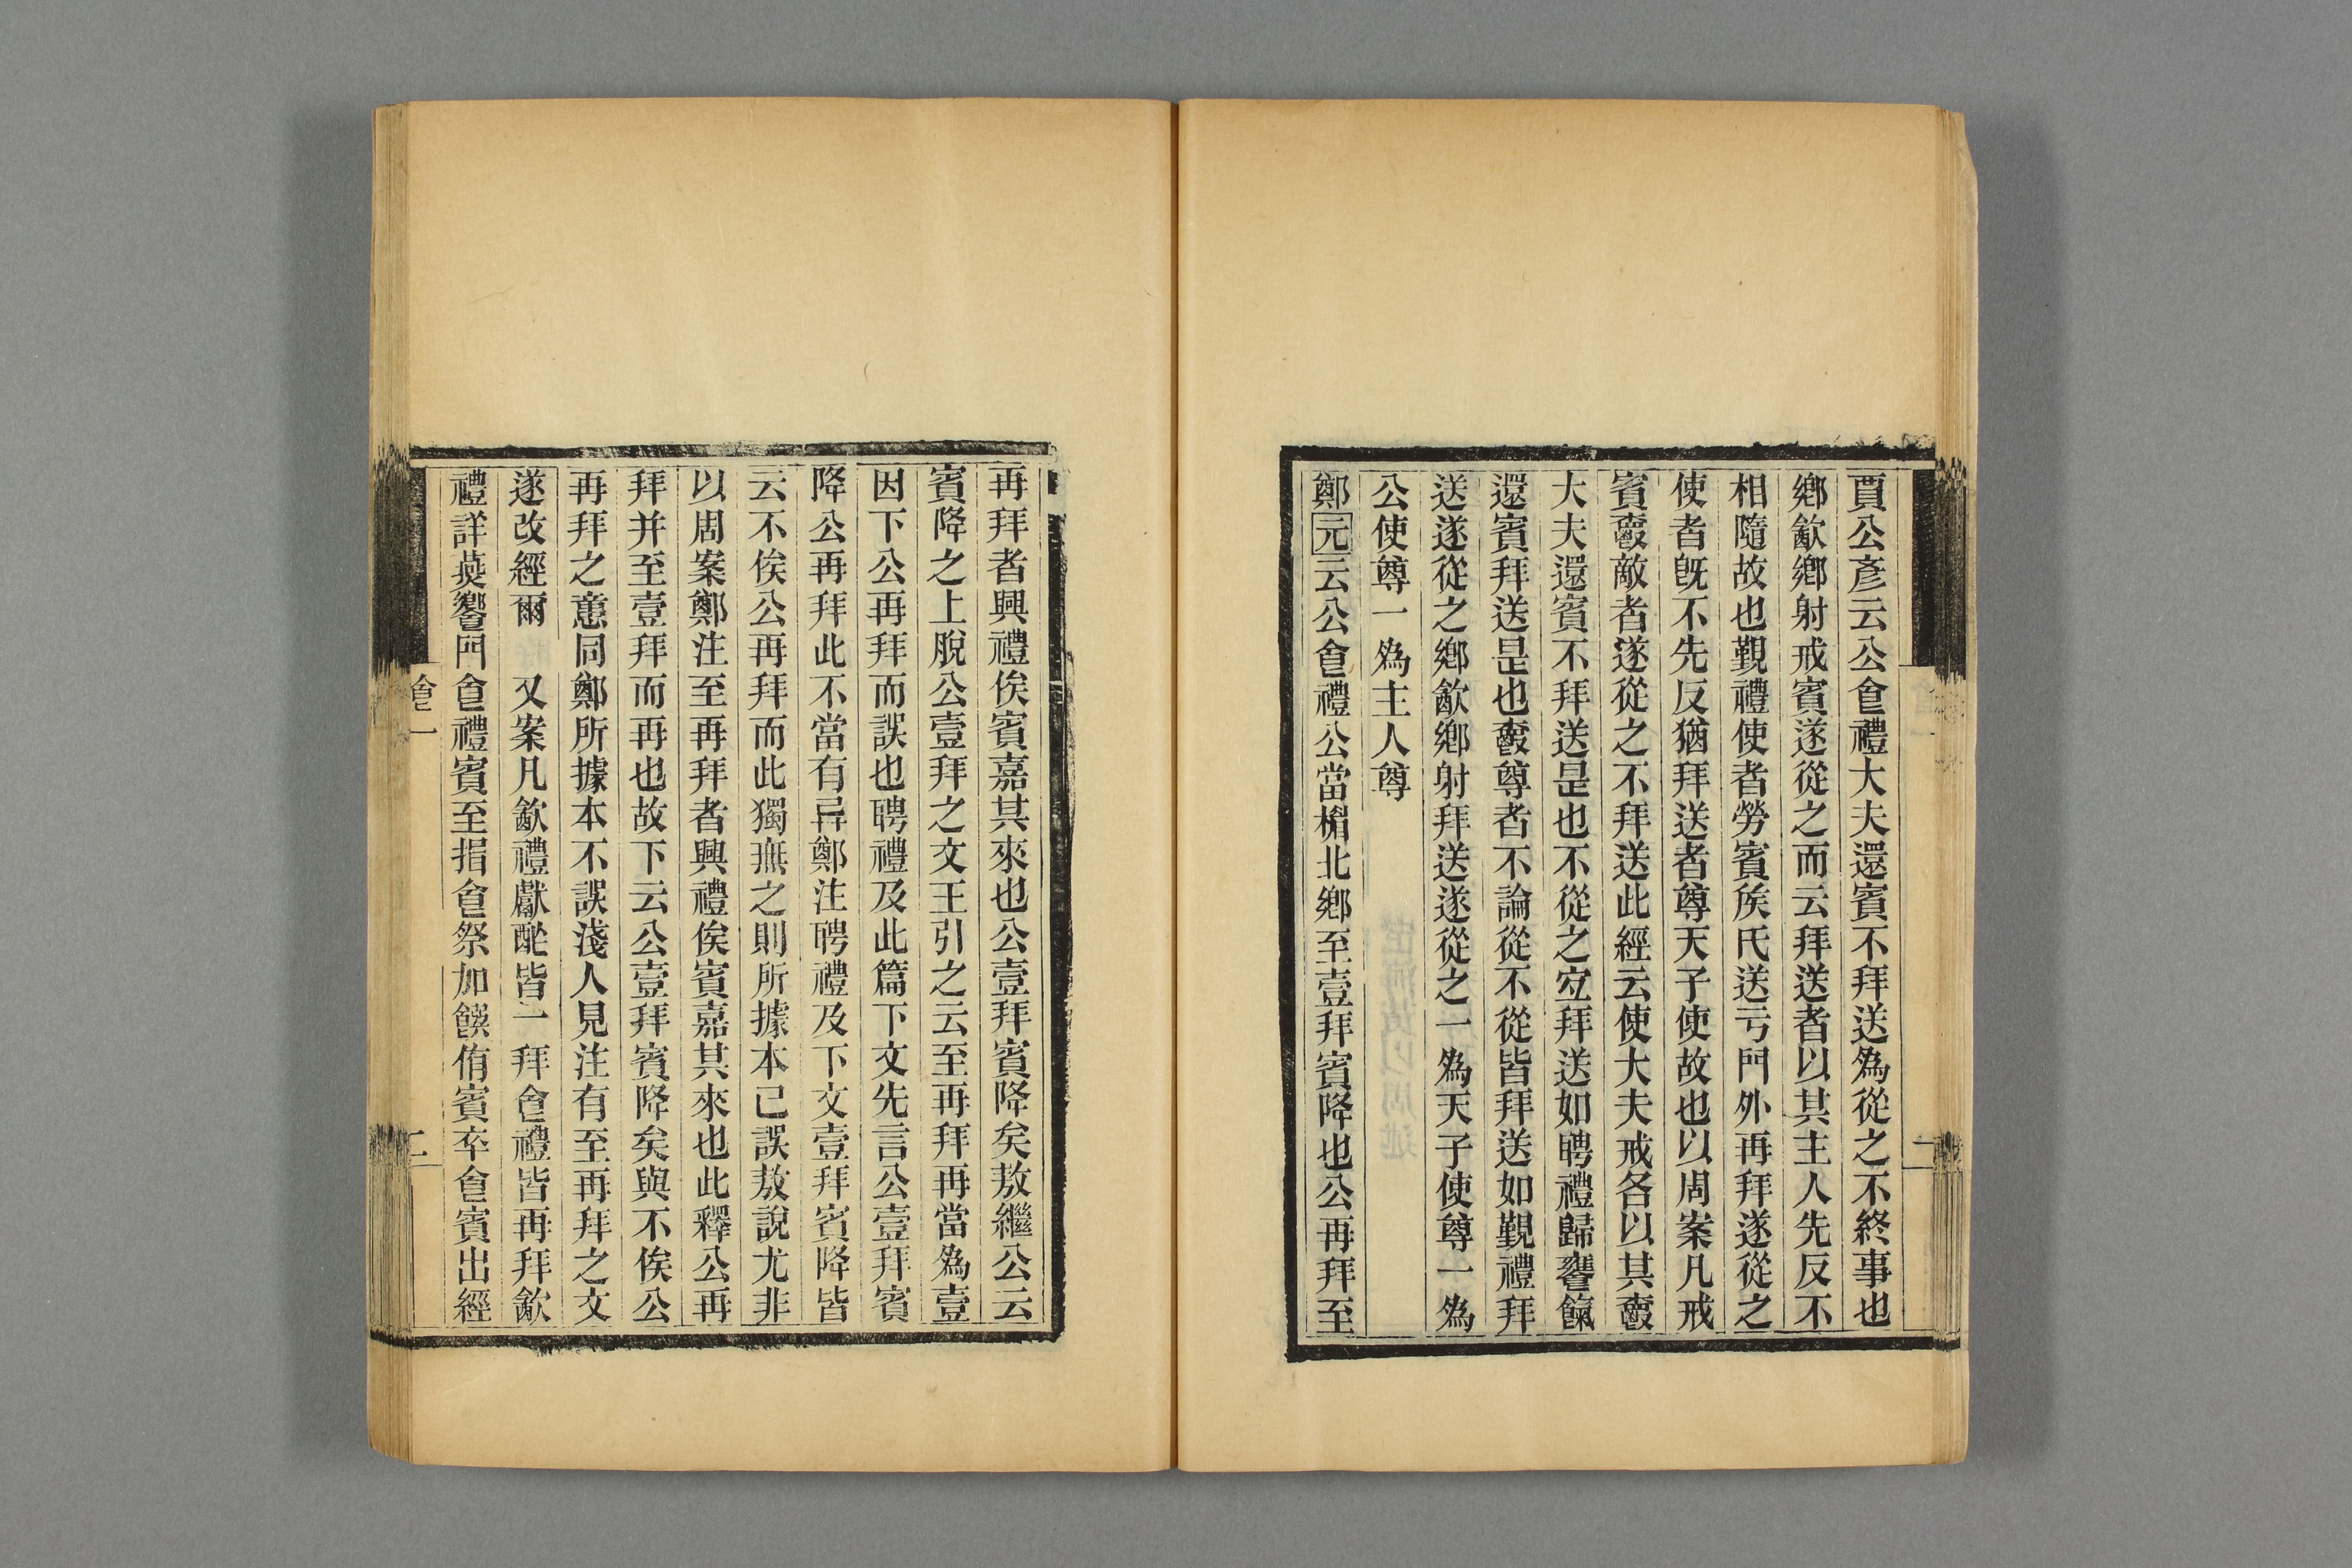 賈公彥云公㑹禮大夫還賓不拜送爲從之不終事也
鄉㱃鄉射戒賓遂從之而云拜送者以其主人先反不
相隨故也覲禮使者勞賓矦氏送亏門外再拜遂從之
使者旣不先反猶拜送者尊天子使故也以周案凡戒
賓敵者遂從之不拜送此經云使大夫戒各以其爵
大夫還賓不拜送是也不從之㝎拜送如聘禮歸饔餼
還賓拜送是也爵尊者不論從不從皆拜送如覲禮拜
送遂從之鄉㱃鄉射拜送遂從之一爲天子使尊一爲
公使尊一爲主人尊
鄭元云公食禮公當楣北鄉至壹拜賓降也公再拜至
再拜者興禮俟賓嘉其來也公壹拜賓降矣敖繼公云
賓降之上脫公壹拜之文王引之云至再拜再當爲壹
因下公再拜而誤也聘禮及此篇下文先言公壹拜賓
降公再拜此不當有異鄭注聘禮及下文壹拜賓降皆
云不俟公再拜而此獨無之則所據本已誤敖說尤非
以周案鄭注至再拜者興禮俟賓嘉其來也此釋公再
拜并至壹拜而再也故下云公壹拜賓降矣與不俟公
再拜之意同鄭所據本不誤淺人見注有至再拜之文
遂改經爾 又案凡㱃禮獻酢皆一拜食禮皆再拜㱃
禮詳燕饗門食禮賓至揖食祭加饌侑賓卒食賓出經
食一
二